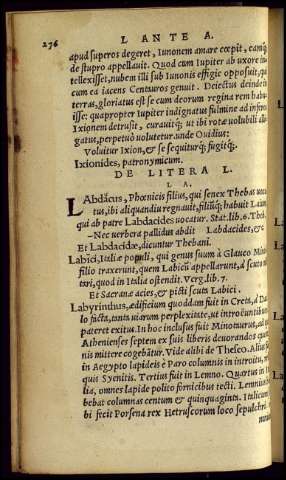 236 L ANTE A.
apud superos degeret, Iunonem amare cœpit, eamq́;
de stupro appellauit. Quod cum Iupiter ab uxore in-
tellexisset, nubem illi sub Iunonis effigie opposuit, qui
cum ea iacens Centauros genuit. Deiectus deinde in
terras, gloriatus est se cum deorum regina rem habu
isse: quapropter Iupiter indignatus fulmine ad inferos
Ixionem detrusit, curauitq́; ut ibi rotæ uolubili alli-
gatus, perpetuò uolutetur. unde Ouidius:
Voluitur Ixion, & se sequiturq́; fugitq́;.
Ixionides, patronymicum.
DE LITERA L.
L A.
LAbdăcus, Phœnicis filius, qui senex Thebas uoca
tus, ibi aliquandiu regnauit, filiũq́; habuit Laium
qui ab patre Labdacides uocatur. Stat. lib. 6. Theb.
–Nec uerbera pallidus abdit Labdacides, &c.
Et Labdacidæ, dicuntur Thebani.
Labici, Italiæ populi, qui genus suum à Glauco Mino
filio traxerunt, quem Labicũ appellarunt, à scuto mi
tari, quod in Italia ostendit. Verg. lib. 7.
Et Sacranæ acies, & picti scuta Labici.
Labyrinthus, ædificium quoddam fuit in Creta, à Da
lo factũ, tanta uiarum perplexitate, ut introëunti non
pateret exitus. In hoc inclusus fuit Minotaurus, ad quẽ
Athenienses septem ex suis liberis deuorandos quot an
nis mittere cogebãtur. Vide alibi de Theseo. Alius fuit
in Aegypto lapideis è Paro columnis in introitu, reli
quis Syenitis. Tertius fuit in Lemno. Quartus in Ita
lia, omnes lapide polito fornicibus tecti. Lemnius ha
bebat columnas centum & quinquaginta. Italicum si
bi fecit Porsena rex Hetruscorum loco sepulchri.